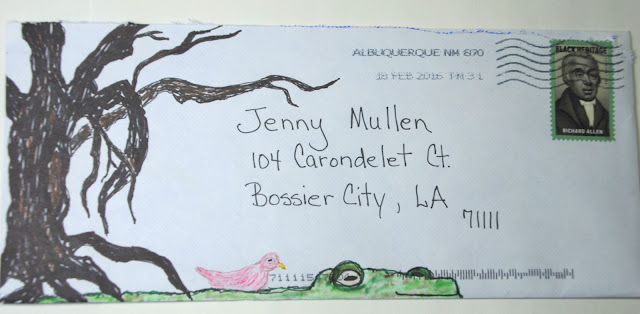 ALBUQUERQUE NM 870
18 FEB 2016 PM 3 L
BLACK HERITAGE
RICHARD ALLEN
Jenny Mullen
104 Carondelet Ct.
Bossier City, LA
71111
711115